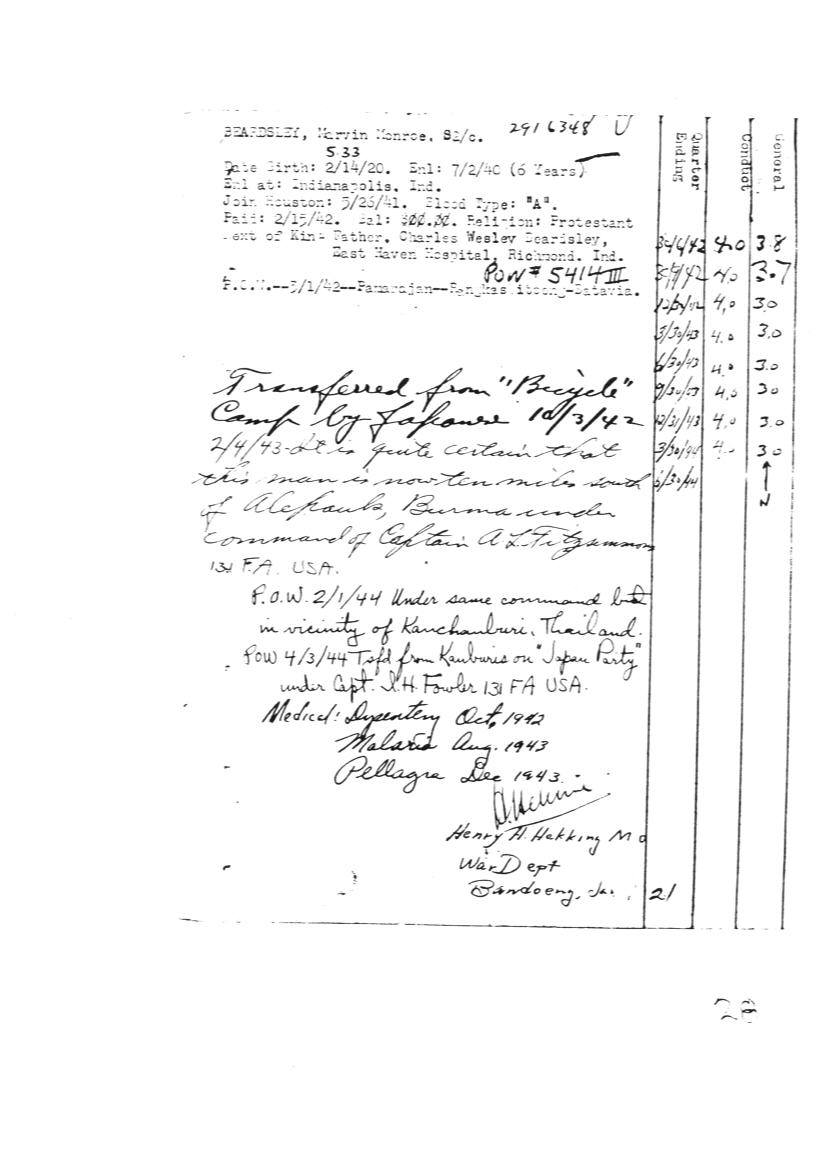 BEARDSLEY, Marvin Monroe, S2/c. 2916348 U
533
Date Birth: 2/14/20. Enl: 7/2/40 (6 Years)
Enl at: Indianapolis, Ind.
Join Houston: 5/26/41. Blood Type: "A".
Paid: 2/15/42. Bal: $00.00. Religion: Protestant
Next of Kin: Father, Charles Wesley Beardsley,
East Haven Hospital, Richmond. Ind.
POW # 5414 III
P.O.W.--3/1/42--Pamarajan-- -Batavia.
Transferred from "Bicycle"
Camp by Japanese 10/3/42
2/4/43-It is quite certain that
this man is now ten miles south
of Burma under
command of Captain A L Fitzsimmons
131 F.A. USA.
P.O.W. 2/1/44 Under same command but
in vicinity of Kanchanburi, Thailand.
POW 4/3/44 Tsfd from Kanburi on "Japan Party"
under Capt. I.H. Fowler 131 FA USA.
Medical: Dysentery Oct, 1942
Malaria Aug. 1943
Pellagra Dec 1943.
Henry H. Hekking M D
War Dept
Bandoeng, Ja
21
Quarter Ending Conduct General
4.0 3.8
4.0 3.7
4.0 3.0
3/30/43 4.0 3.0
6/30/43 4.0 3.0
9/30/43 4.0 3.0
12/31/43 4.0 3.0
3/30/44 4.0 3.0
6/30/44
N
28